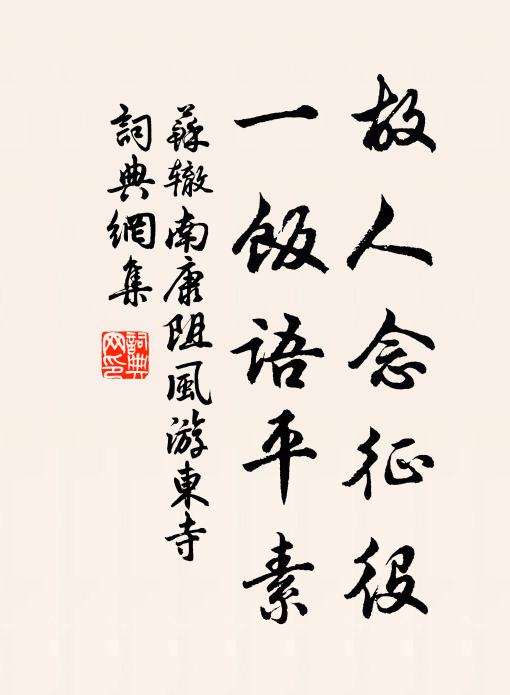 故人念征役
一飯語平素
蘇轍南康阻風游東寺
詞典網集
詞典網印